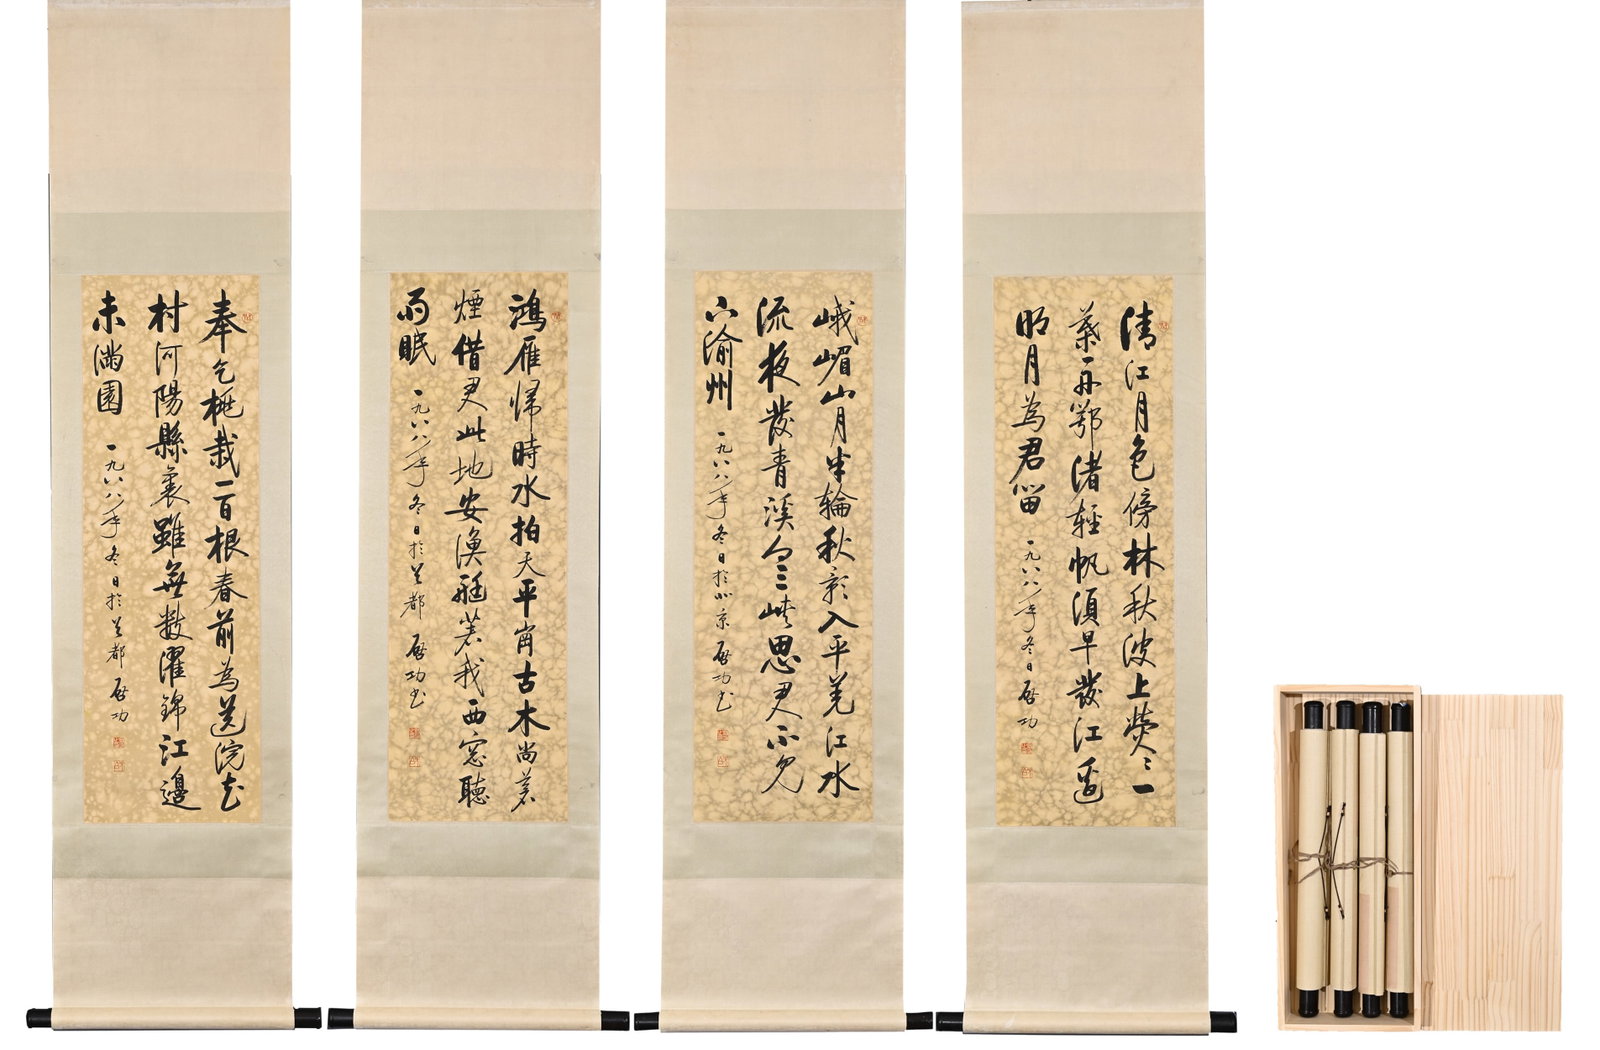 清江月色傍林秋波上熒々一
葉舟鄂渚輕帆須早發江邊
明月為君留 一九八八年冬日 啟功
峨嵋山月半輪秋影入平羌江水
流夜發青溪向三峽思君不見
下渝州 一九八八年冬日於北京 啟功書
鴻雁歸時水拍天平岡古木尚寒
煙借君此地安漁艇著我西窗聽
雨眠 一九八八年冬日於首都 啟功書
奉乞桃栽一百根春前為送浣花
村河陽縣裏雖無數濯錦江邊
未滿園 一九八八年冬日於首都 啟功